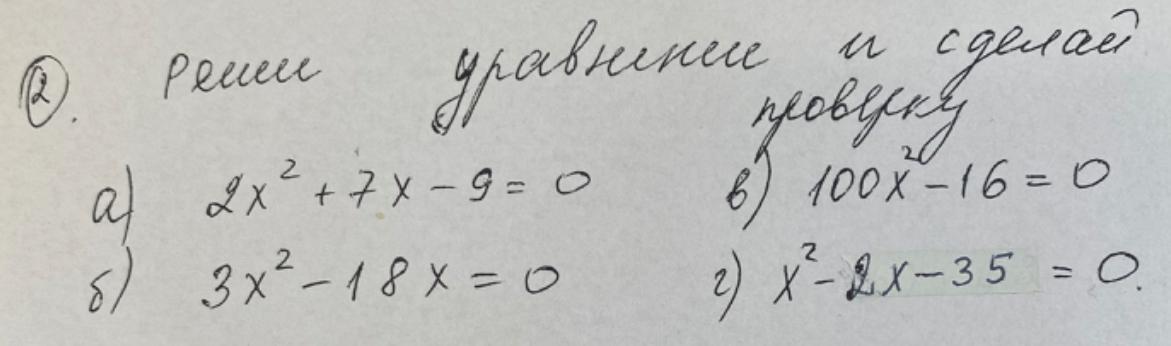 2. Реши уравнения и сделай
проверку
а) 2x² + 7x - 9 = 0 в) 100x² - 16 = 0
б) 3x² - 18x = 0 г) x² - 2x - 35 = 0.